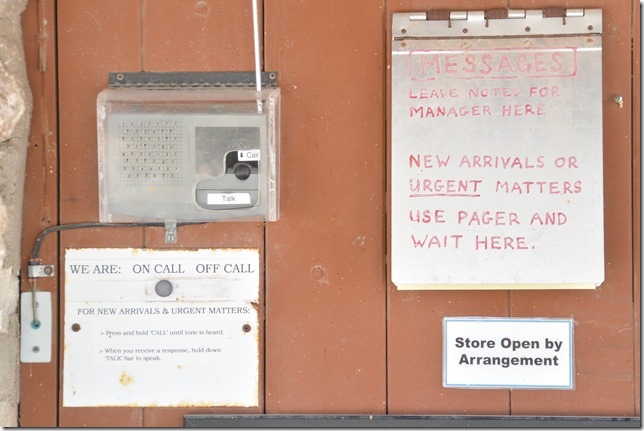 ↓ Call
Talk
WE ARE: ON CALL OFF CALL
FOR NEW ARRIVALS & URGENT MATTERS:
> Press and hold 'CALL' until tone is heard.
> When you receive a response, hold down
'TALK' bar to speak.
MESSAGES
LEAVE NOTES FOR
MANAGER HERE
NEW ARRIVALS OR
URGENT MATTERS
USE PAGER AND
WAIT HERE.
Store Open by
Arrangement